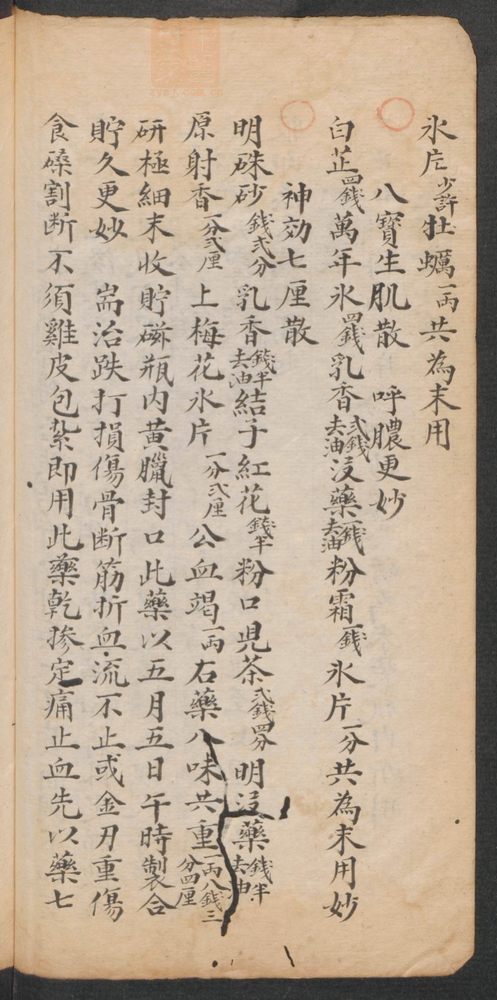 氷片少許牡蠣一両共為末用
八寶生肌散 呼膿更妙
白芷四錢萬年氷四錢乳香弍錢去油没藥錢去油粉霜一錢氷片一分共為末用妙
神効七厘散
明硃砂錢弍分乳香錢半去油結子紅花錢半粉口児茶弍錢四分明没藥錢半去油
原射香一分弍厘上梅花氷片一分弍厘公血竭一両右藥八味共重一両八錢三分四厘
研極細末收貯磁瓶内黄臘封口此藥以五月五日午時製合
貯久更妙 耑治跌打損傷骨断筋折血流不止或金刃重傷
食嗓割断不須雞皮包紮即用此藥乾掺定痛止血先以藥七